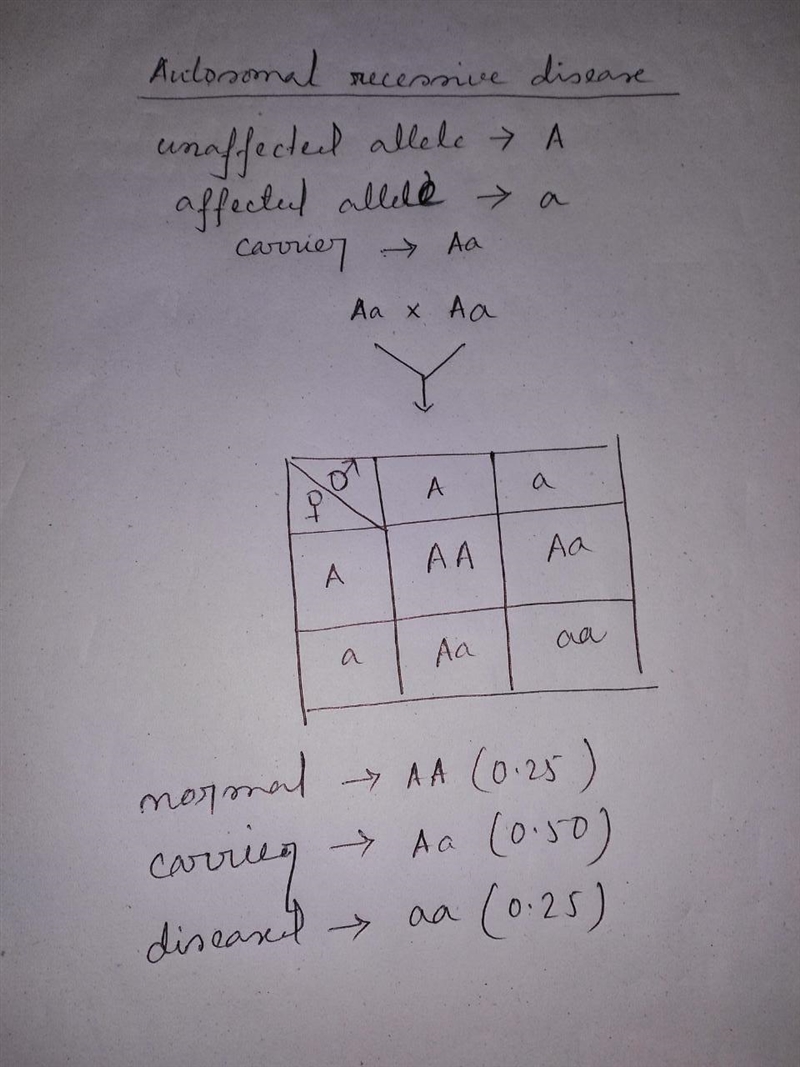 Autosomal recessive disease
unaffected allele → A
affected allele → a
carrier → Aa
Aa × Aa
♀ ♂ A a
A AA Aa
a Aa aa
normal → AA (0.25)
carrier → Aa (0.50)
diseased → aa (0.25)